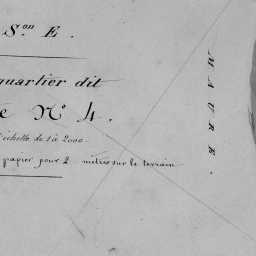 S.on E.
quartier dit
e N.o 4.
échelle de 1 à 2000.
papier pour 2 mètres sur le terrain
MAURE.